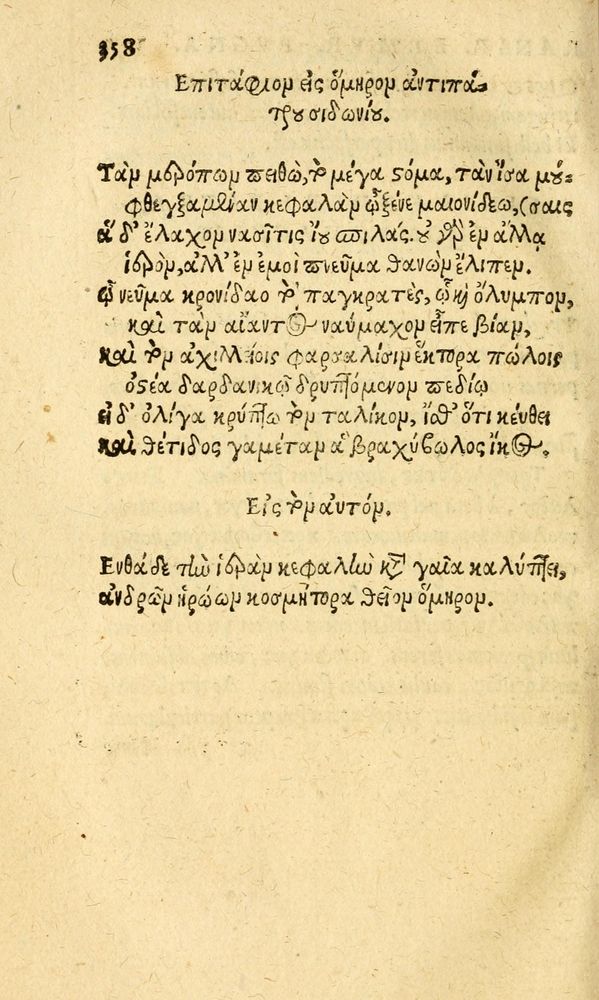 358
Επιτάφιον εις ὅμηρον ἀντιπά-
τρου σιδωνίου.
Τὰν μερόπων πειθὼ, τὸ μέγα στόμα, τὰν ἴσα μού-
φθεγξαμέναν κεφαλὰν ὦ ξένε μαιονίδεω, (σαις
ἅ δ' ἔλαχον νασῖτις ἴου σπιλάς. οὐ γὰρ ἐν ἄλλᾳ
ἱερὸν, ἀλλ' ἐν ἐμοὶ πνεῦμα θανὼν ἔλιπεν.
ᾧ νεῦμα κρονίδαο τὸ παγκρατὲς, ᾧ καὶ ὄλυμπον,
καὶ τὰν αἴαντος ναύμαχον εἶπε βίαν,
καὶ τὸν ἀχιλλείοις φαρσαλίσιν ἕκτορα πώλοις
ὀστέα δαρδανικῷ δρυπτόμενον πεδίῳ
εἰ δ' ὀλίγα κρύπτω τὸν ταλίκον, ἴσθ' ὅτι κεύθει
καὶ θέτιδος γαμέταν ἁ βραχύβωλος ἴκος.
Εἰς τὸν αυτόν.
Ενθάδε τὴν ἱερὰν κεφαλὴν κατὰ γαῖα καλύπτει,
ἀνδρῶν ἡρώων κοσμήτορα θεῖον ὅμηρον.